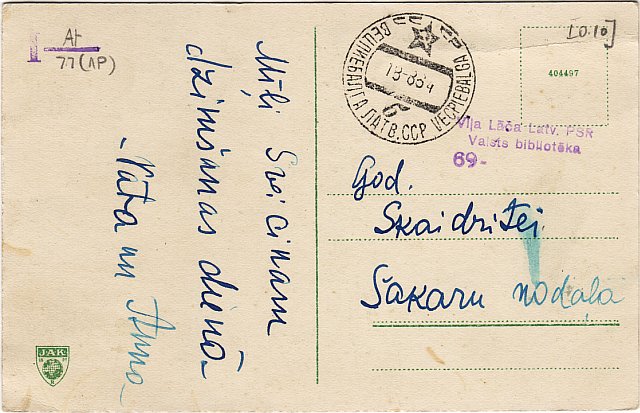 At
77(AP)
Mīļi Sveicinam
dzimšanas dienā
- Vata un Anna
ВЕЦПИЕБАЛГА ЛАТВ.ССР VECPIEBALGA
б
[0.10]
404497
Viļa Lāča Latv. PSR
Valsts bibliotēka
69-
God.
Skaidrītei
Sakaru nodaļā
JAK